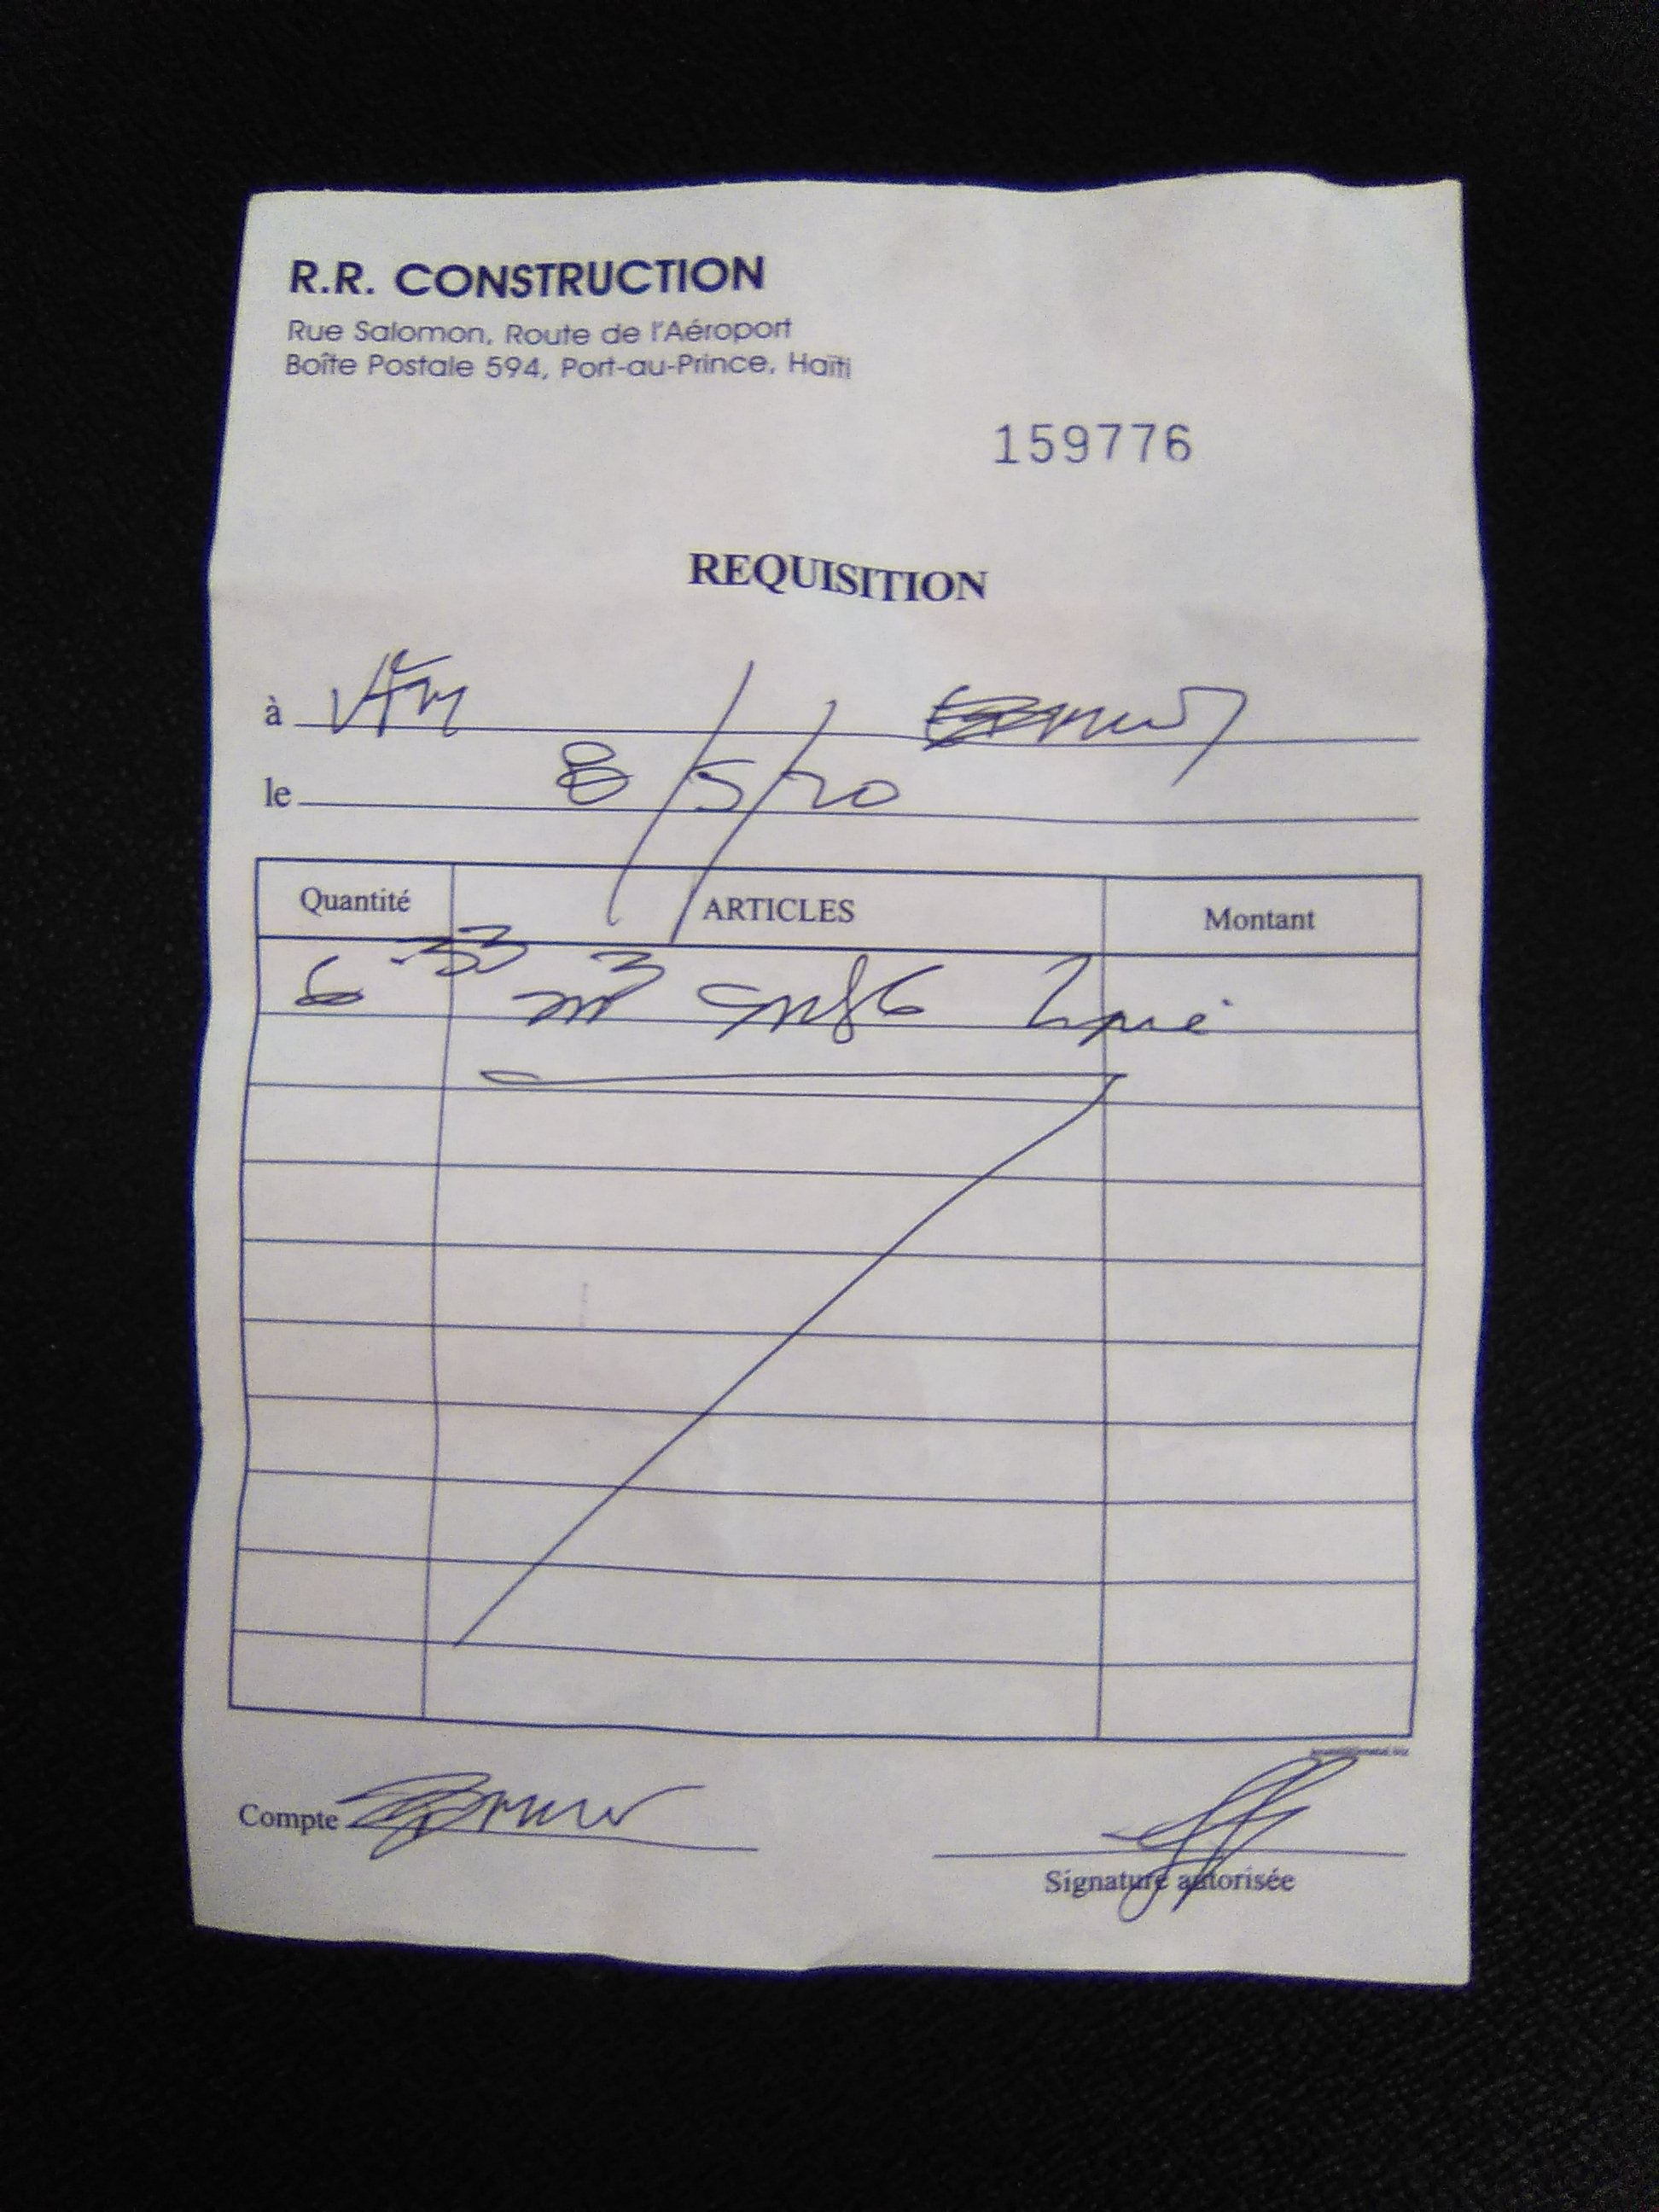 R.R. CONSTRUCTION
Rue Salomon, Route de l'Aéroport
Boîte Postale 594, Port-au-Prince, Haïti
159776
REQUISITION
à
le 8/5/20
Quantité ARTICLES Montant
6.33 m³
Compte
Signature autorisée